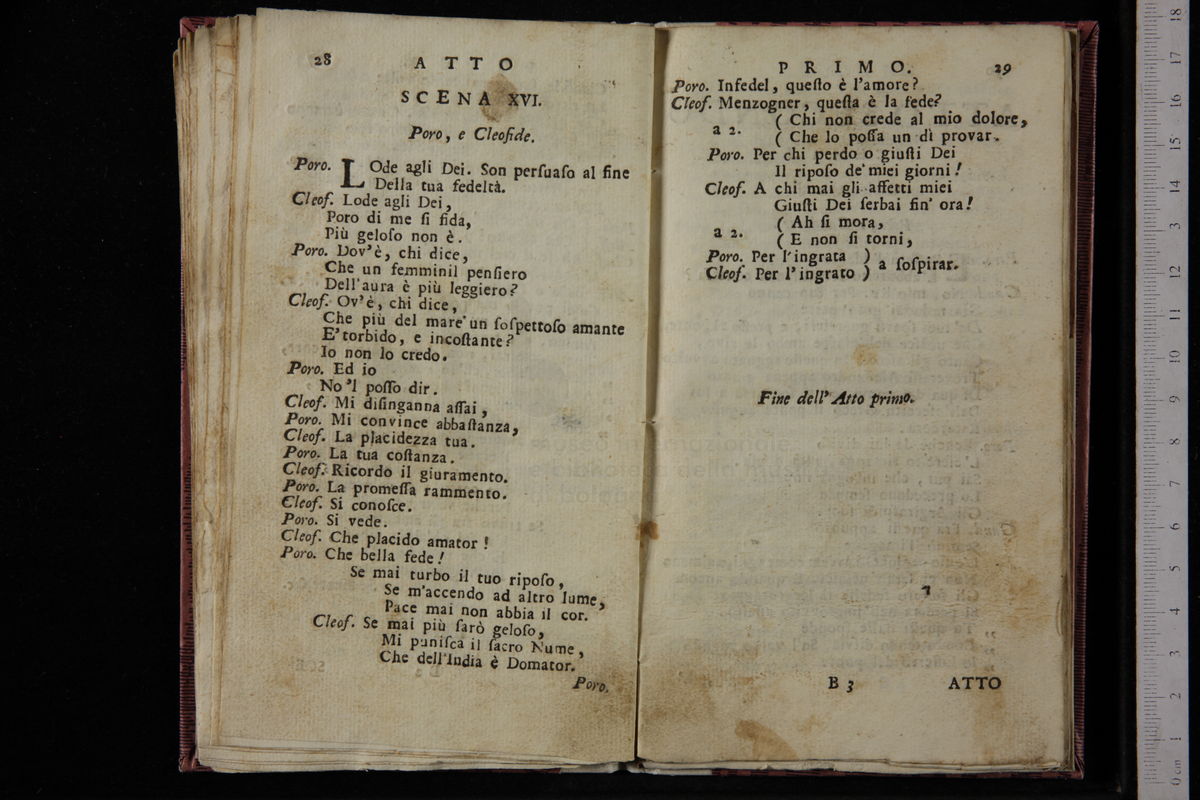 28 ATTO
SCENA XVI.
Poro, e Cleofide.
Poro. LOde agli Dei. Son perſuaſo al fine
Della tua fedeltà.
Cleof. Lode agli Dei,
Poro di me ſi fida,
Più geloſo non è.
Poro. Dov'è, chi dice,
Che un femminil penſiero
Dell'aura è più leggiero?
Cleof. Ov'è, chi dice,
Che più del mare un ſoſpettoſo amante
E' torbido, e incoſtante?
Io non lo credo.
Poro. Ed io
No'l poſſo dir.
Cleof. Mi diſinganna aſſai,
Poro. Mi convince abbaſtanza,
Cleof. La placidezza tua.
Poro. La tua coſtanza.
Cleof. Ricordo il giuramento.
Poro. La promeſſa rammento.
Cleof. Si conoſce.
Poro. Si vede.
Cleof. Che placido amator!
Poro. Che bella fede!
Se mai turbo il tuo ripoſo,
Se m'accendo ad altro lume,
Pace mai non abbia il cor.
Cleof. Se mai più ſarò geloſo,
Mi puniſca il ſacro Nume,
Che dell'India è Domator.
Poro.
PRIMO. 29
Poro. Infedel, queſto è l'amore?
Cleof. Menzogner, queſta è la fede?
a 2. ( Chi non crede al mio dolore,
( Che lo poſſa un dì provar.
Poro. Per chi perdo o giuſti Dei
Il ripoſo de' miei giorni!
Cleof. A chi mai gli affetti miei
Giuſti Dei ſerbai fin' ora!
a 2. ( Ah ſi mora,
( E non ſi torni,
Poro. Per l'ingrata ) a ſoſpirar.
Cleof. Per l'ingrato )
Fine dell' Atto primo.
B 3 ATTO
18
17
16
15
14
13
12
11
10
9
8
7
6
5
4
3
2
1
0 cm